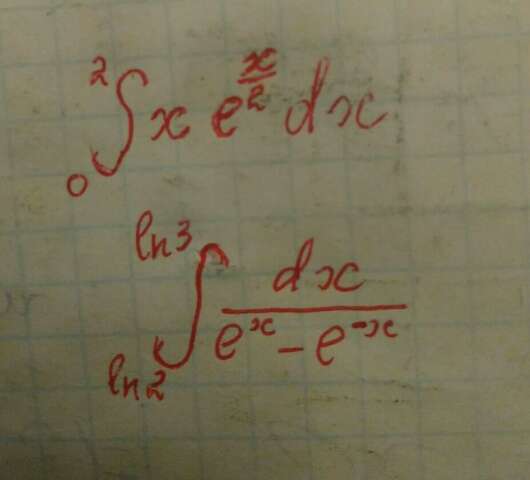 ₀∫² x e^(x/2) dx
ln2∫ln3 dx/(e^x − e^(−x))